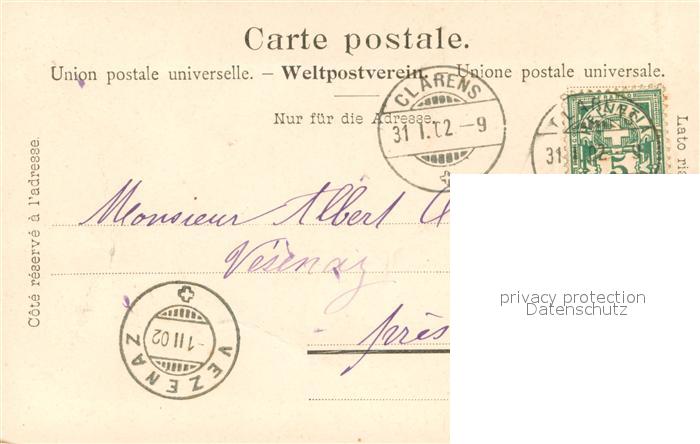 Carte postale.
Union postale universelle. – Weltpostverein. – Unione postale universale.
Nur für die Adresse.
CLARENS
31 I. 02 – 9
HELVETIA
5
Côté réservé à l'adresse.
Lato ri
Monsieur Albert
Vésenaz
près
VEZENAZ
-1 II 02
privacy protection
Datenschutz